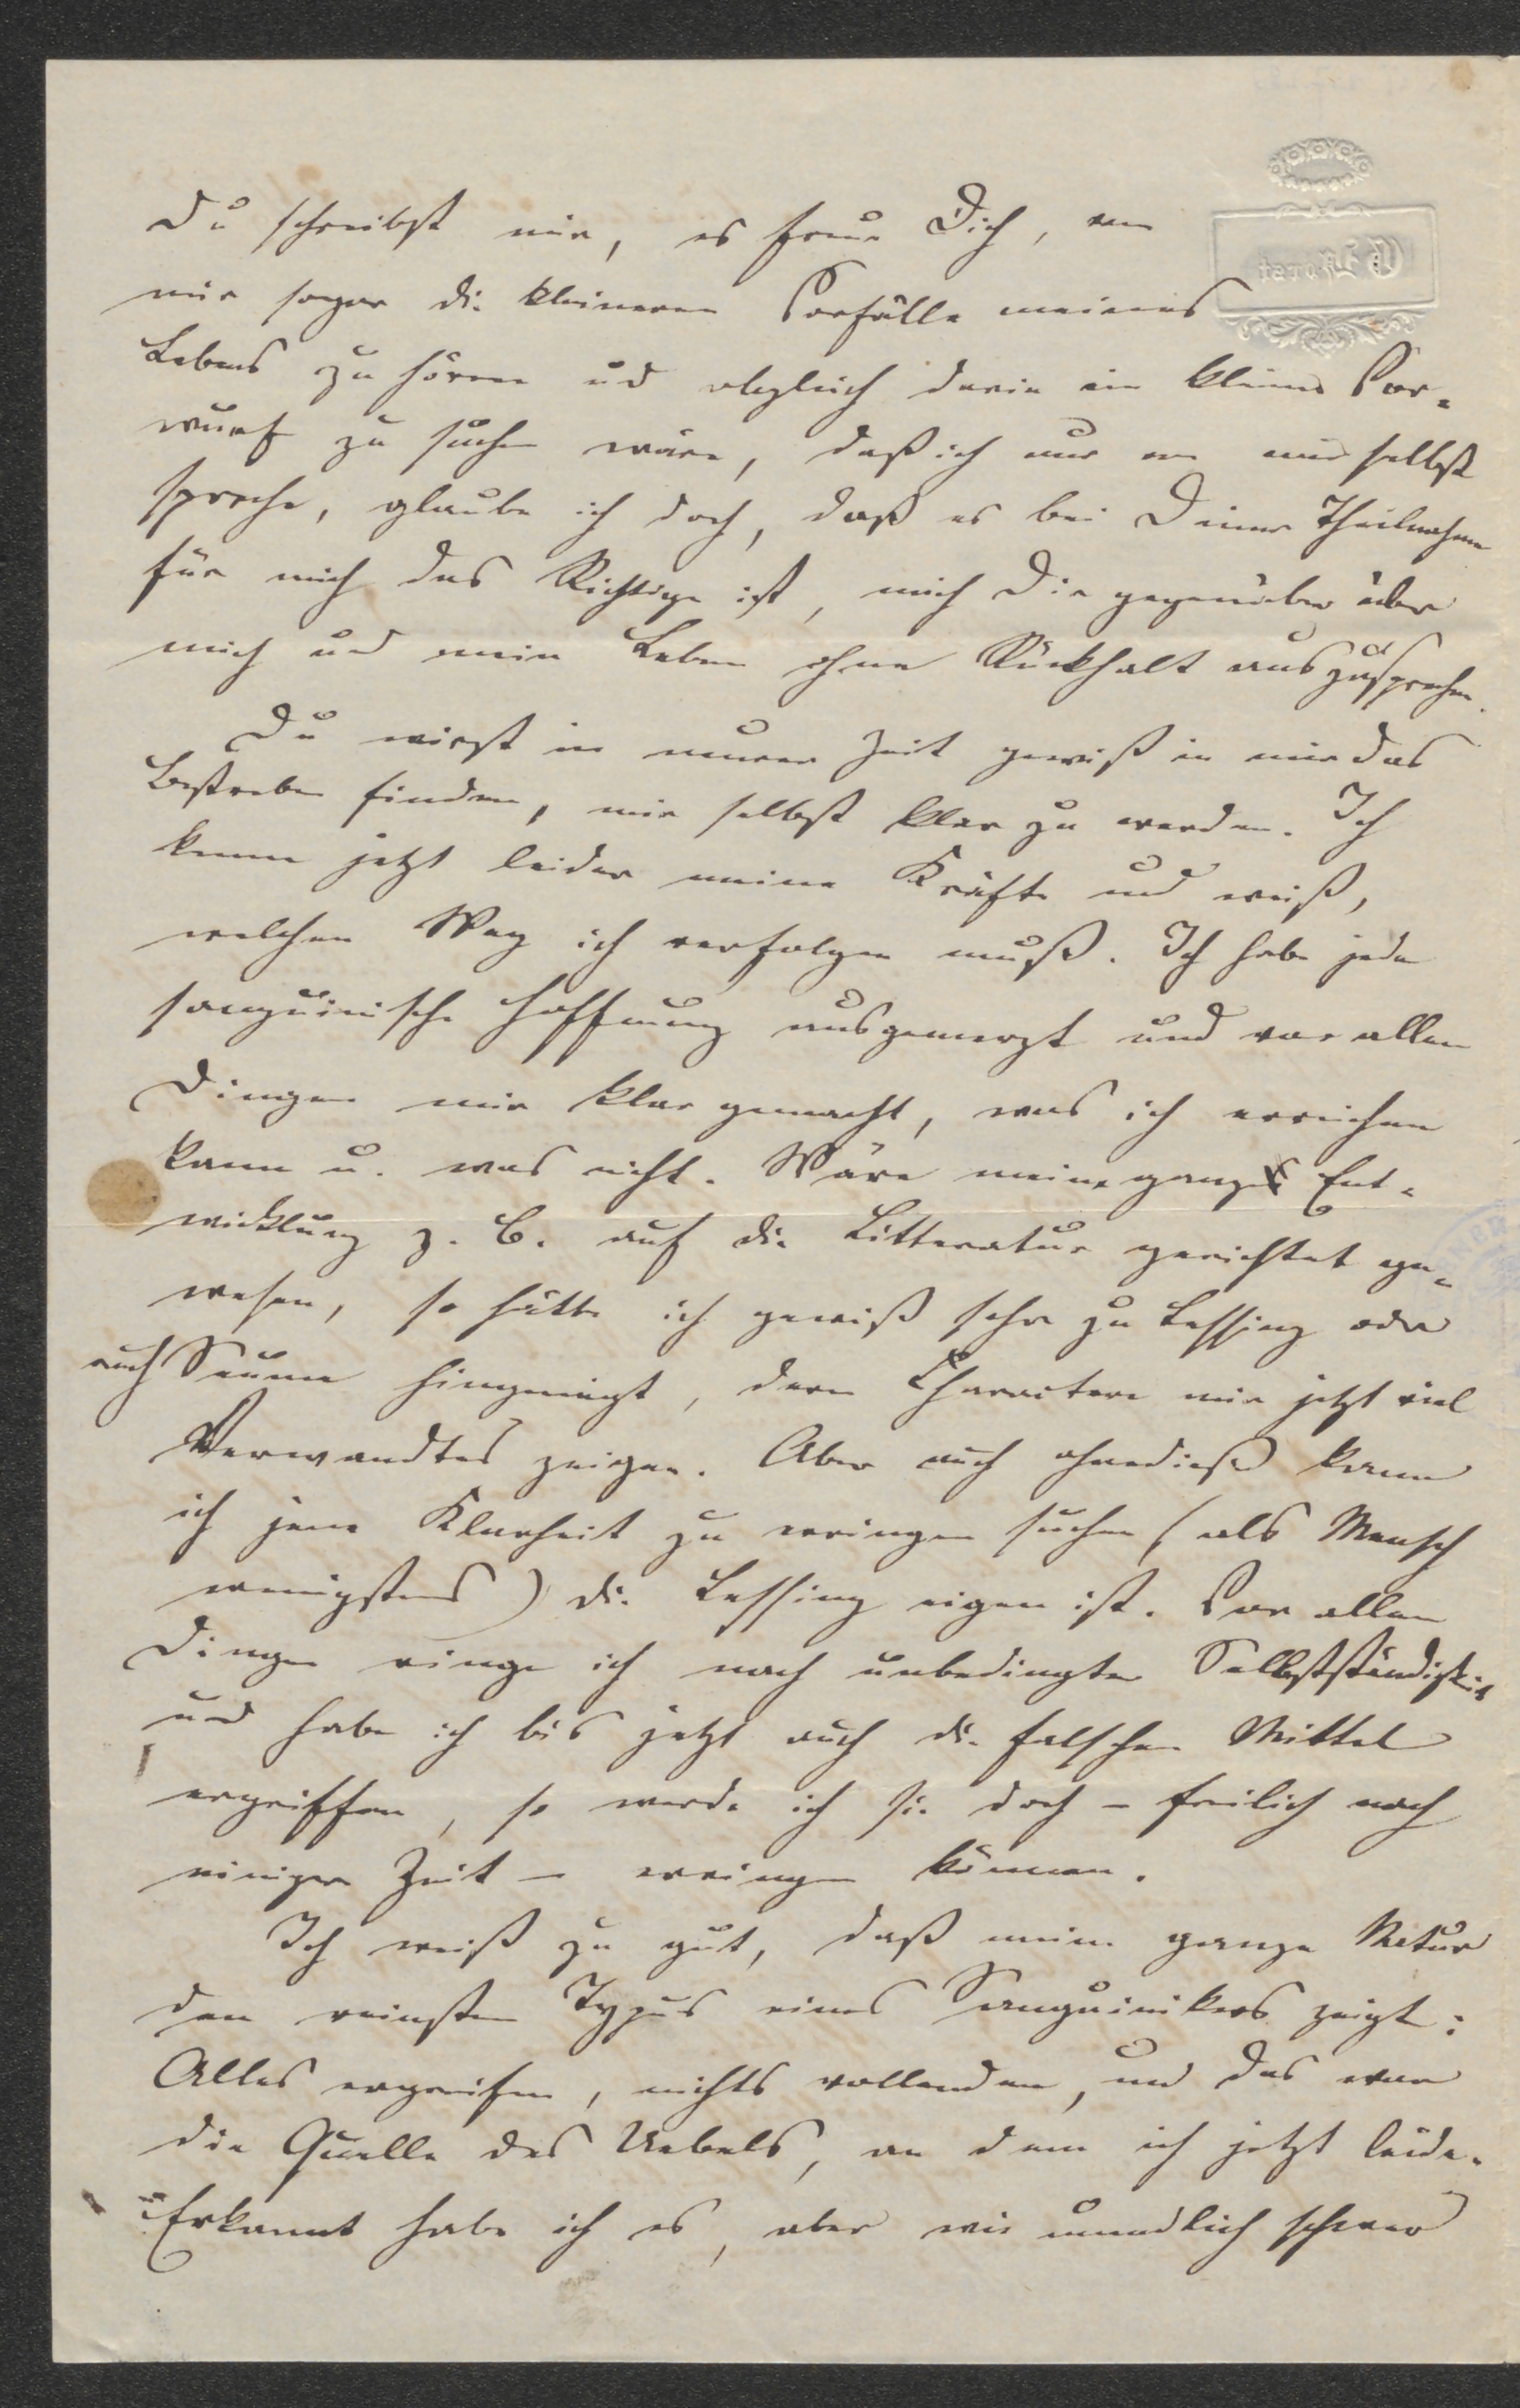 Du schreibst mir, es freue Dich, von
mir sogar die kleineren Vorfälle meines
Lebens zu hören und obgleich darin ein kleiner Vor-
wurf zu suchen wäre, daß ich nur von mir selbst
spreche, glaube ich doch, daß es bei Deiner Theilnahme
für mich das Richtige ist, mich Dir gegenüber über
mich und mein Leben ohne Rückhalt auszusprechen.
Du wirst in neurer Zeit gewiß in mir das
Bestreben finden, mir selbst klar zu werden. Ich
kenne jetzt leider meine Kräfte und weiß,
welchen Weg ich verfolgen muß. Ich habe jede
sanguinische Hoffnung ausgemerzt und vor allen
Dingen mir klar gemacht, was ich erreichen
kann u. was nicht. Wäre meine ganze Ent-
wicklung z. B. auf die Litteratur gerichtet ge-
wesen, so hätte ich gewiß sehr zu Lessing oder
auch Seume hingeneigt, deren Charactere mir jetzt viel
Verwandtes zeigen. Aber auch ohnedieß kann
ich jene Klarheit zu erringen suchen (als Mensch
wenigstens) die Lessing eigen ist. Vor allen
Dingen ringe ich nach unbedingter Selbstständigkeit
und habe ich bis jetzt auch die falschen Mittel
ergriffen, so werde ich sie doch – freilich nach
einiger Zeit – erringen können.
Ich weiß zu gut, daß meine ganze Natur
den reinsten Typus eines Sanguinikers zeigt:
Alles ergreifen, nichts vollenden, und das war
die Quelle des Uebels, an dem ich jetzt leide.
Erkannt habe ich es, aber wie unendlich schwer